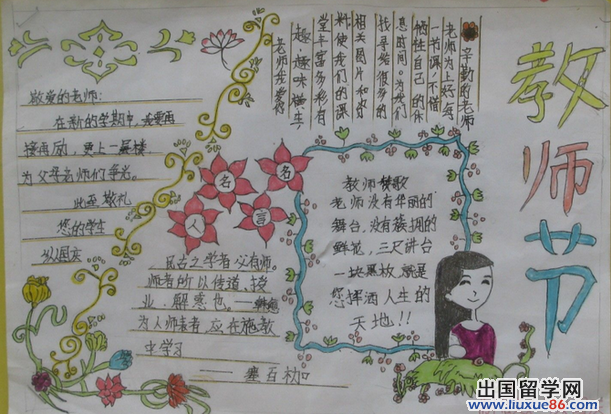 教师节
辛勤的老师
老师为上好每
一节课,不惜
牺牲自己的休
息时间。为我们
找寻给很多的
相关图片和
料使我们的课
堂丰富多彩有
趣,趣味横生
老师我爱你
敬爱的老师:
在新的学期中,我要再
接再励,更上一层楼
为父母老师们争光。
此至敬礼
您的学生
国庆
名人名言
古之学者必有师。
师者所以传道,授
业,解惑也。——韩愈
为人师表者,应在施教
中学习
教师颂歌
老师没有华丽的
舞台,没有簇拥的
鲜花,三尺讲台
一块黑板,就是
您挥洒人生的
天地!!
出国留学网
www.liuxue86.com